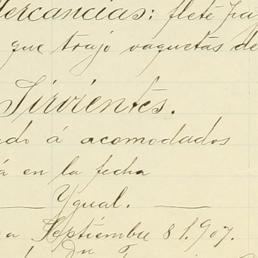 Mercancias: flete pa
que trajo vaquetas de
Sirvientes.
ado á acomodados
á en la fecha
Ygual.
a Septiembre 8 1.907.
Dn